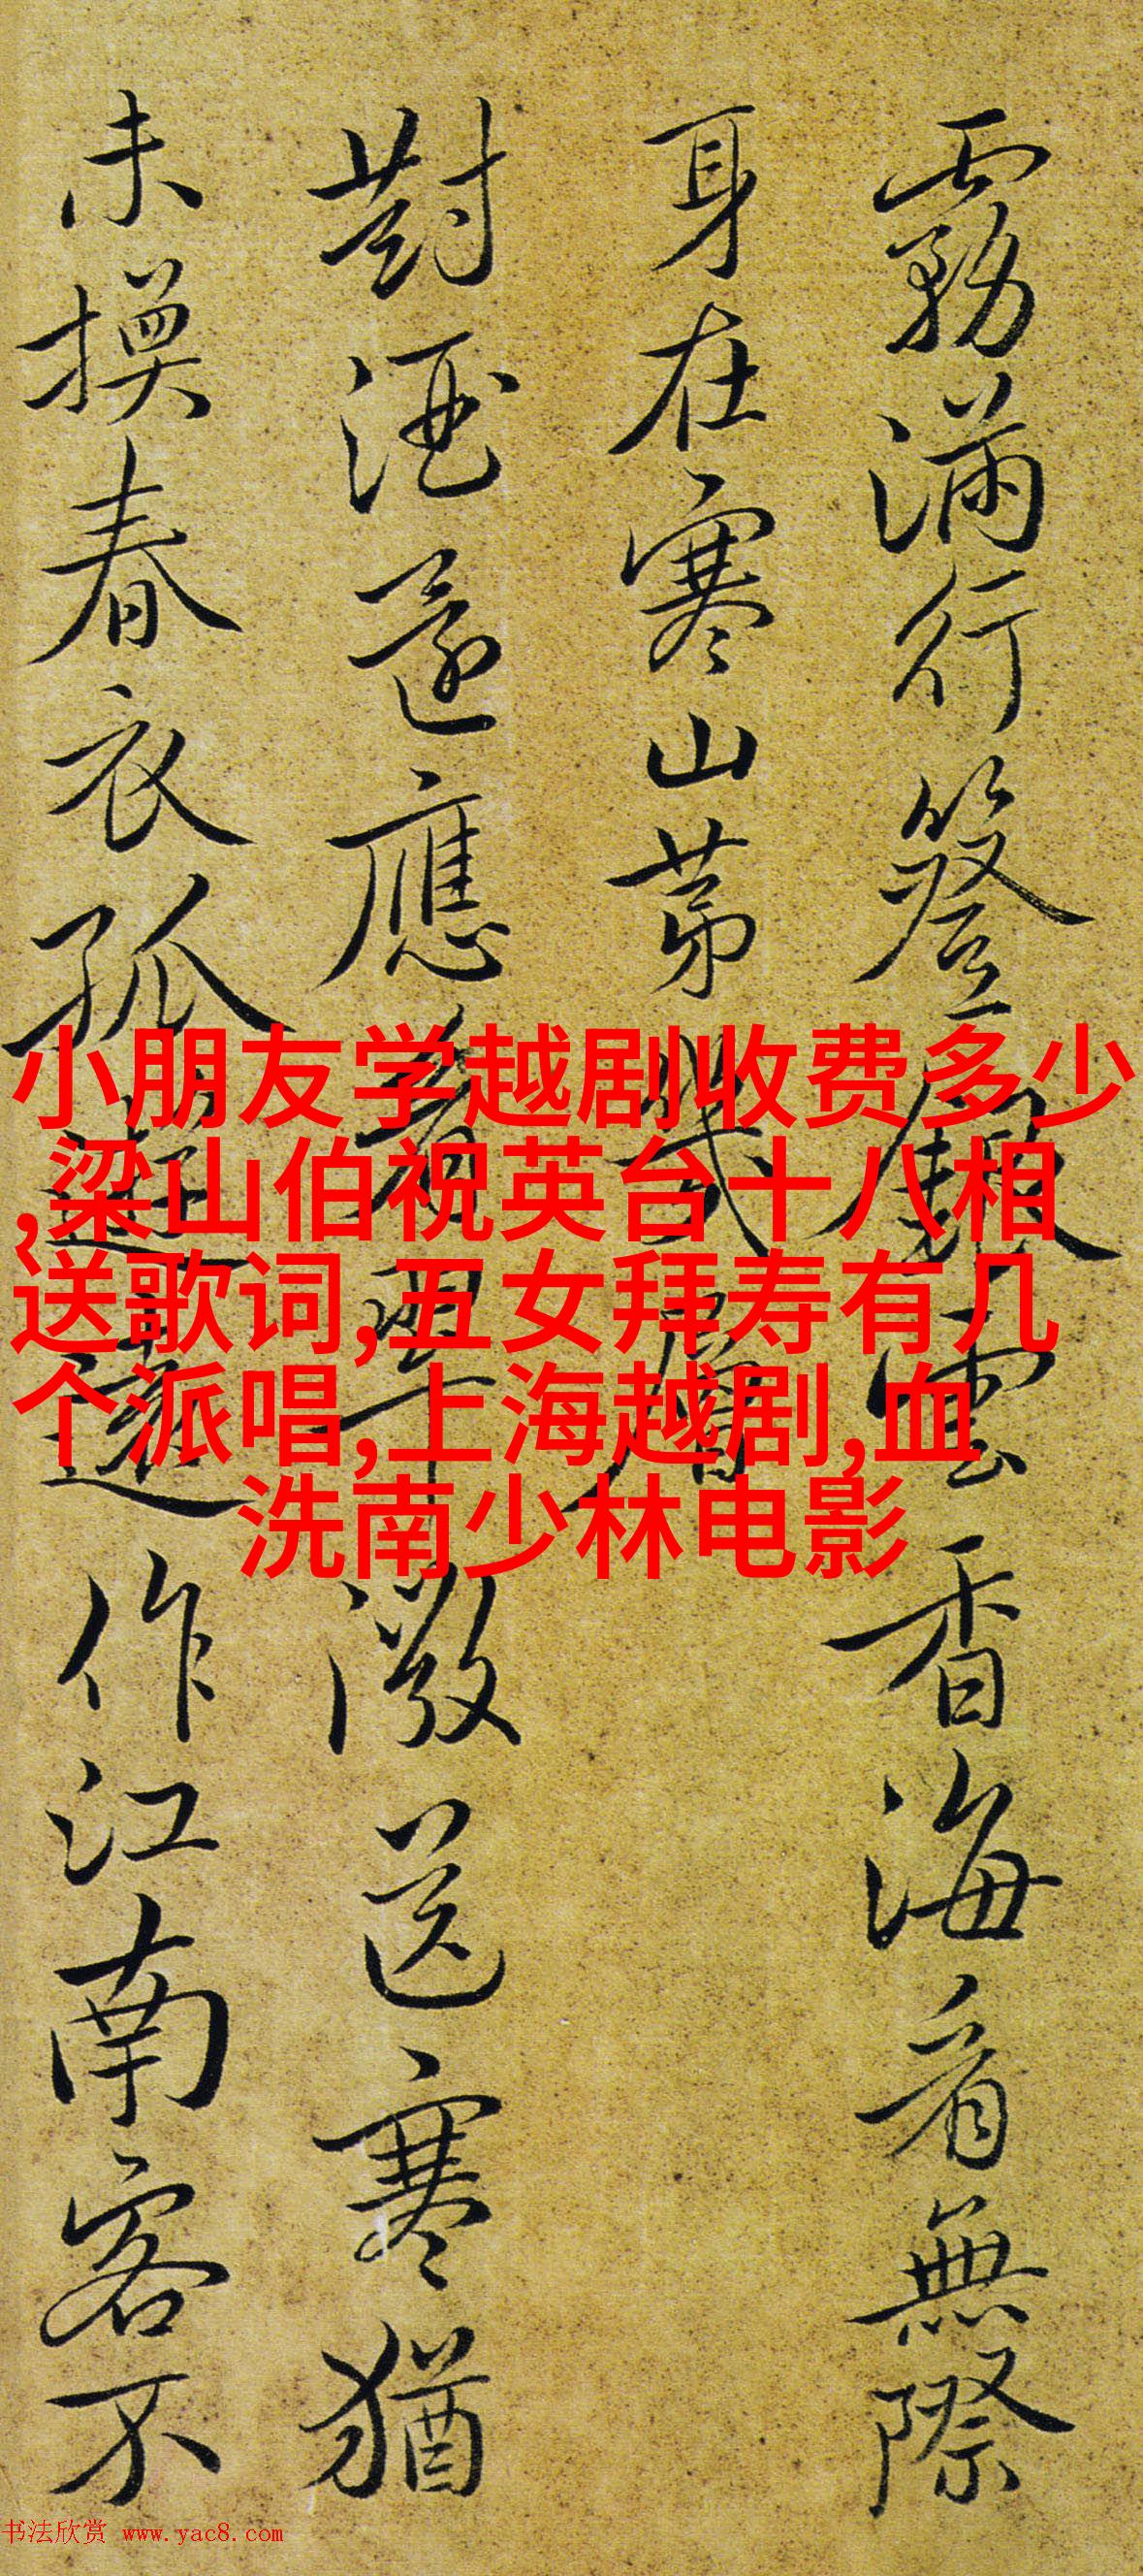 霧滿行簦銀雲香海看無際
身在寒山第幾層
對酒還應看翠澂送寒猶
未換春衣孤遊遠作江南客不
小朋友学越剧收费多少
,梁山伯祝英台十八相
送歌词,五女拜寿有几
个派唱,上海越剧,血
洗南少林电影
书法欣赏 www.yac8.com